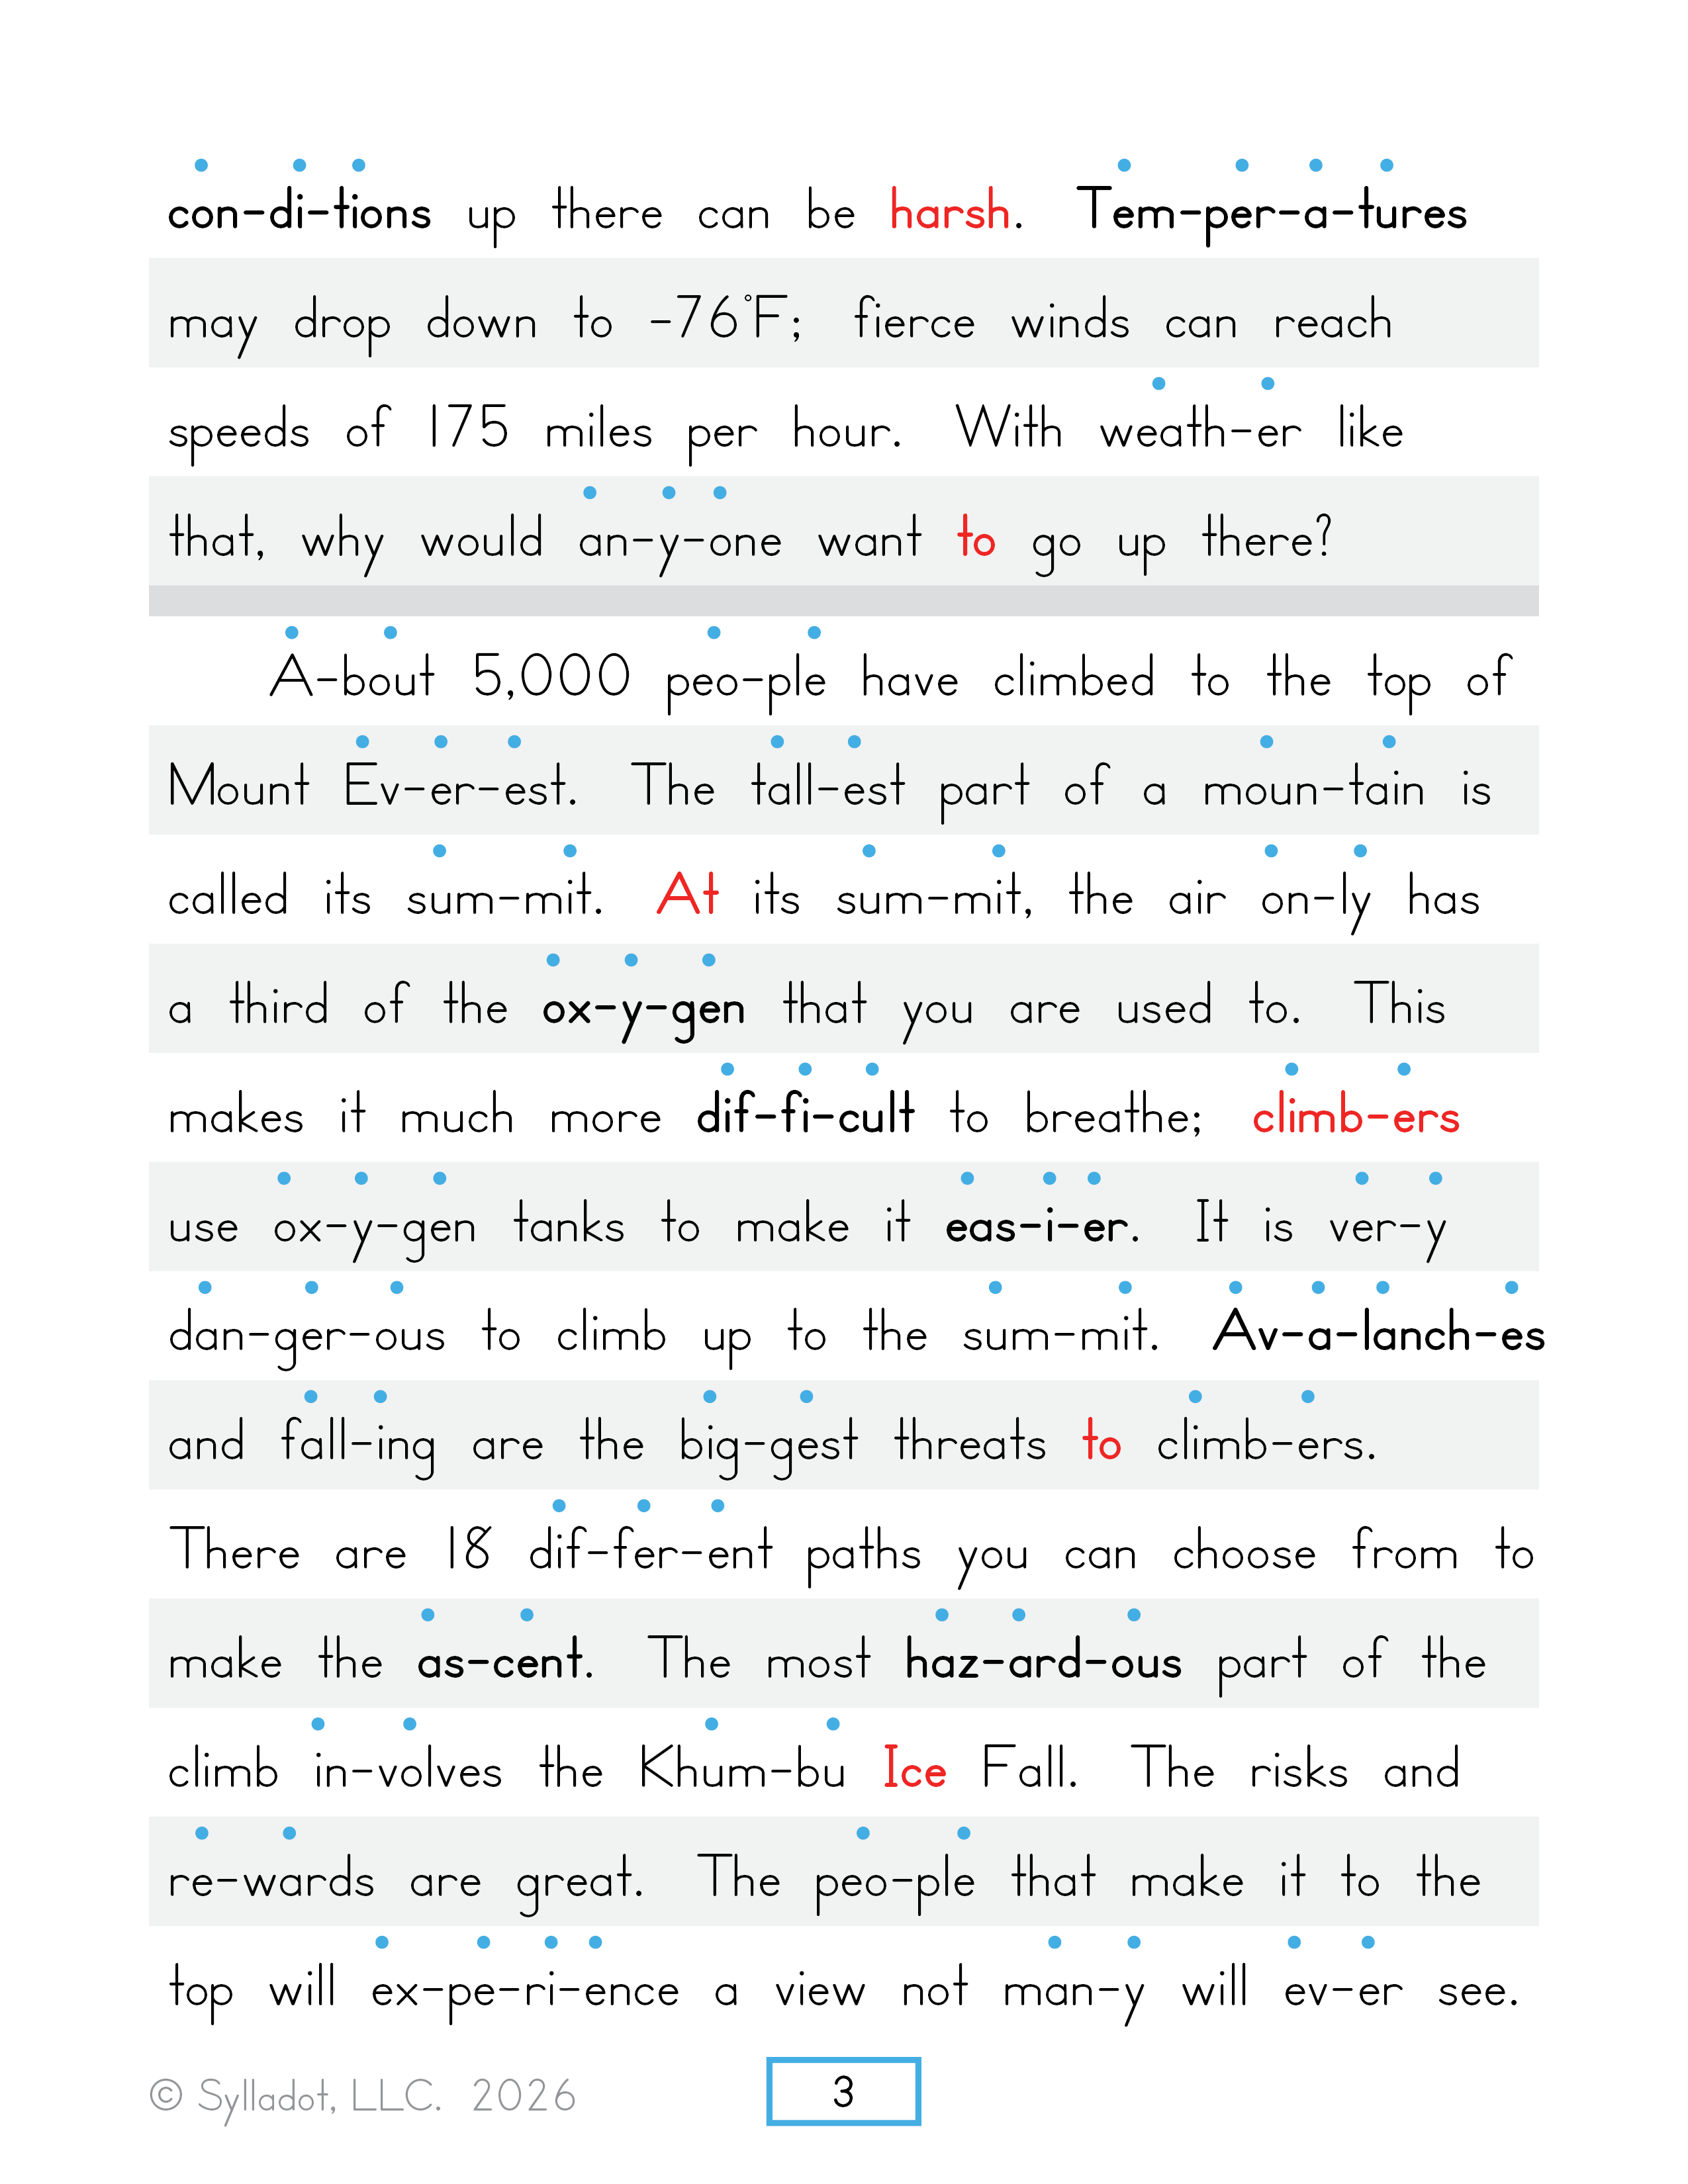 con-di-tions up there can be harsh. Tem-per-a-tures
may drop down to -76°F; fierce winds can reach
speeds of 175 miles per hour. With weath-er like
that, why would an-y-one want to go up there?
A-bout 5,000 peo-ple have climbed to the top of
Mount Ev-er-est. The tall-est part of a moun-tain is
called its sum-mit. At its sum-mit, the air on-ly has
a third of the ox-y-gen that you are used to. This
makes it much more dif-fi-cult to breathe; climb-ers
use ox-y-gen tanks to make it eas-i-er. It is ver-y
dan-ger-ous to climb up to the sum-mit. Av-a-lanch-es
and fall-ing are the big-gest threats to climb-ers.
There are 18 dif-fer-ent paths you can choose from to
make the as-cent. The most haz-ard-ous part of the
climb in-volves the Khum-bu Ice Fall. The risks and
re-wards are great. The peo-ple that make it to the
top will ex-pe-ri-ence a view not man-y will ev-er see.
© Sylladot, LLC. 2026
3